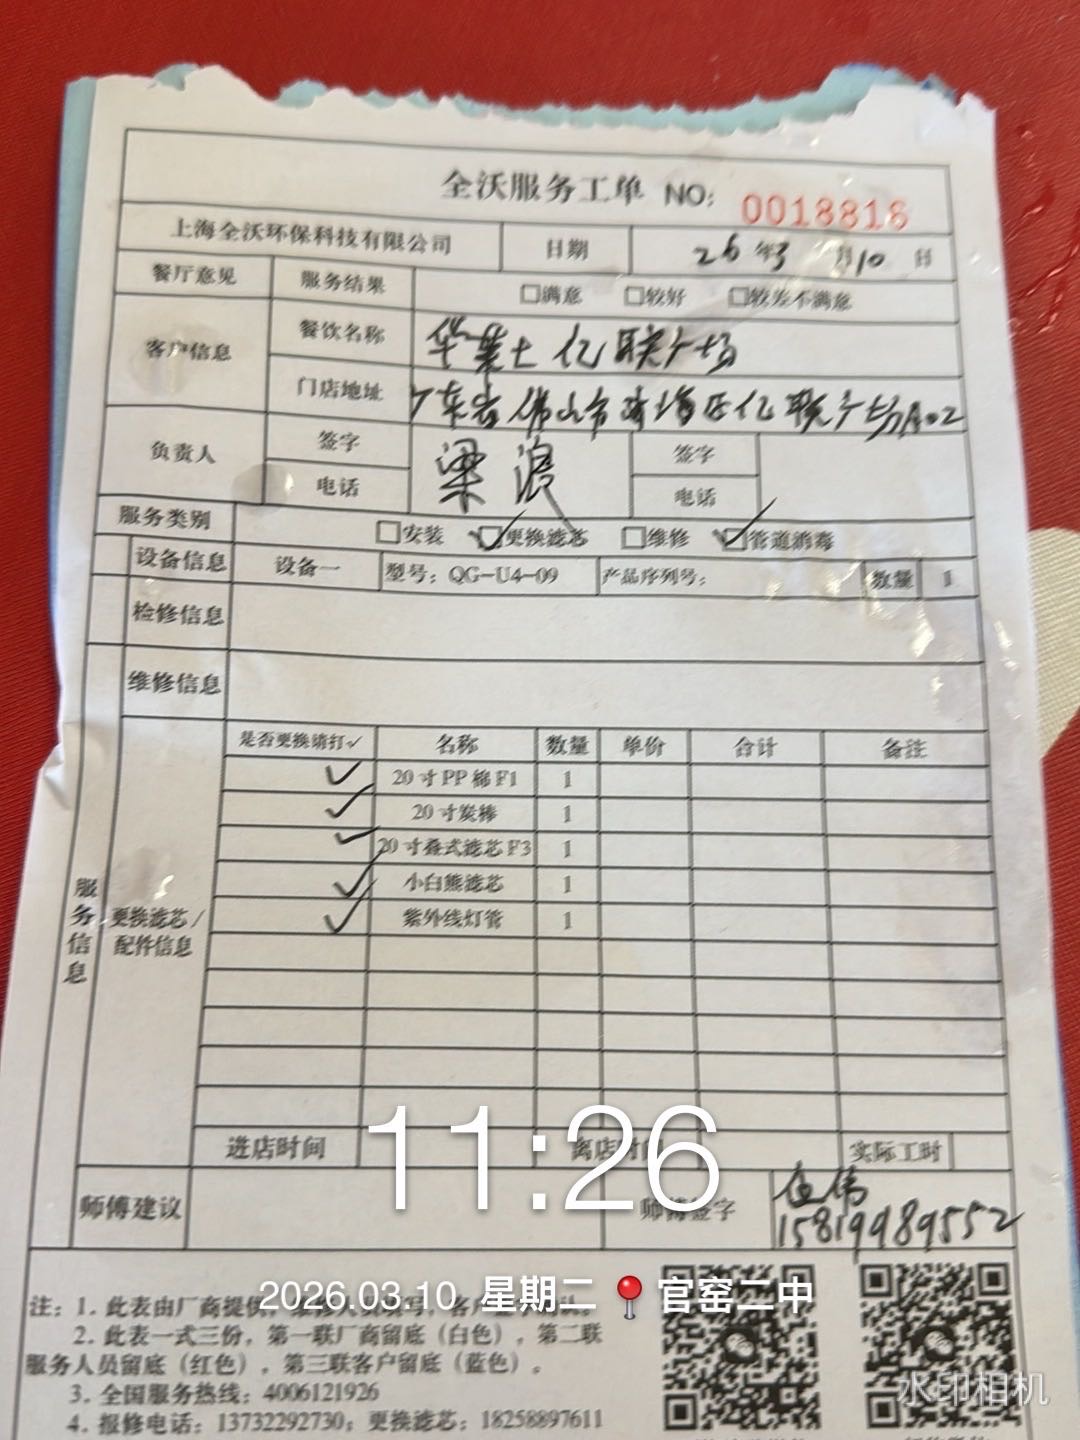 全沃服务工单 NO: 0018816
上海全沃环保科技有限公司 日期 26年3月10日
餐厅意见 服务结果 □满意 □较好 □较差不满意
客户信息 餐饮名称 华莱士亿联广场
门店地址 广东省佛山市南海区亿联广场A02
负责人 签字 梁浪 签字
电话 电话
服务类别 □安装 ☑更换滤芯 □维修 ☑管道消毒
设备信息 设备一 型号：QG-U4-09 产品序列号： 数量 1
检修信息
维修信息
是否更换请打✓ 名称 数量 单价 合计 备注
✓ 20寸PP棉F1 1
✓ 20寸炭棒 1
✓ 20寸叠式滤芯F3 1
✓ 小白熊滤芯 1
✓ 紫外线灯管 1
服务信息
更换滤芯/
配件信息
进店时间 离店时间 实际工时
11:26
师傅建议 师傅签字
15819989552
2026.03.10 星期二 官窑二中
注：1. 此表由厂商提供
2. 此表一式三份，第一联厂商留底（白色），第二联
服务人员留底（红色），第三联客户留底（蓝色）。
3. 全国服务热线：4006121926
4. 报修电话：13732292730；更换滤芯：18258897611
水印相机